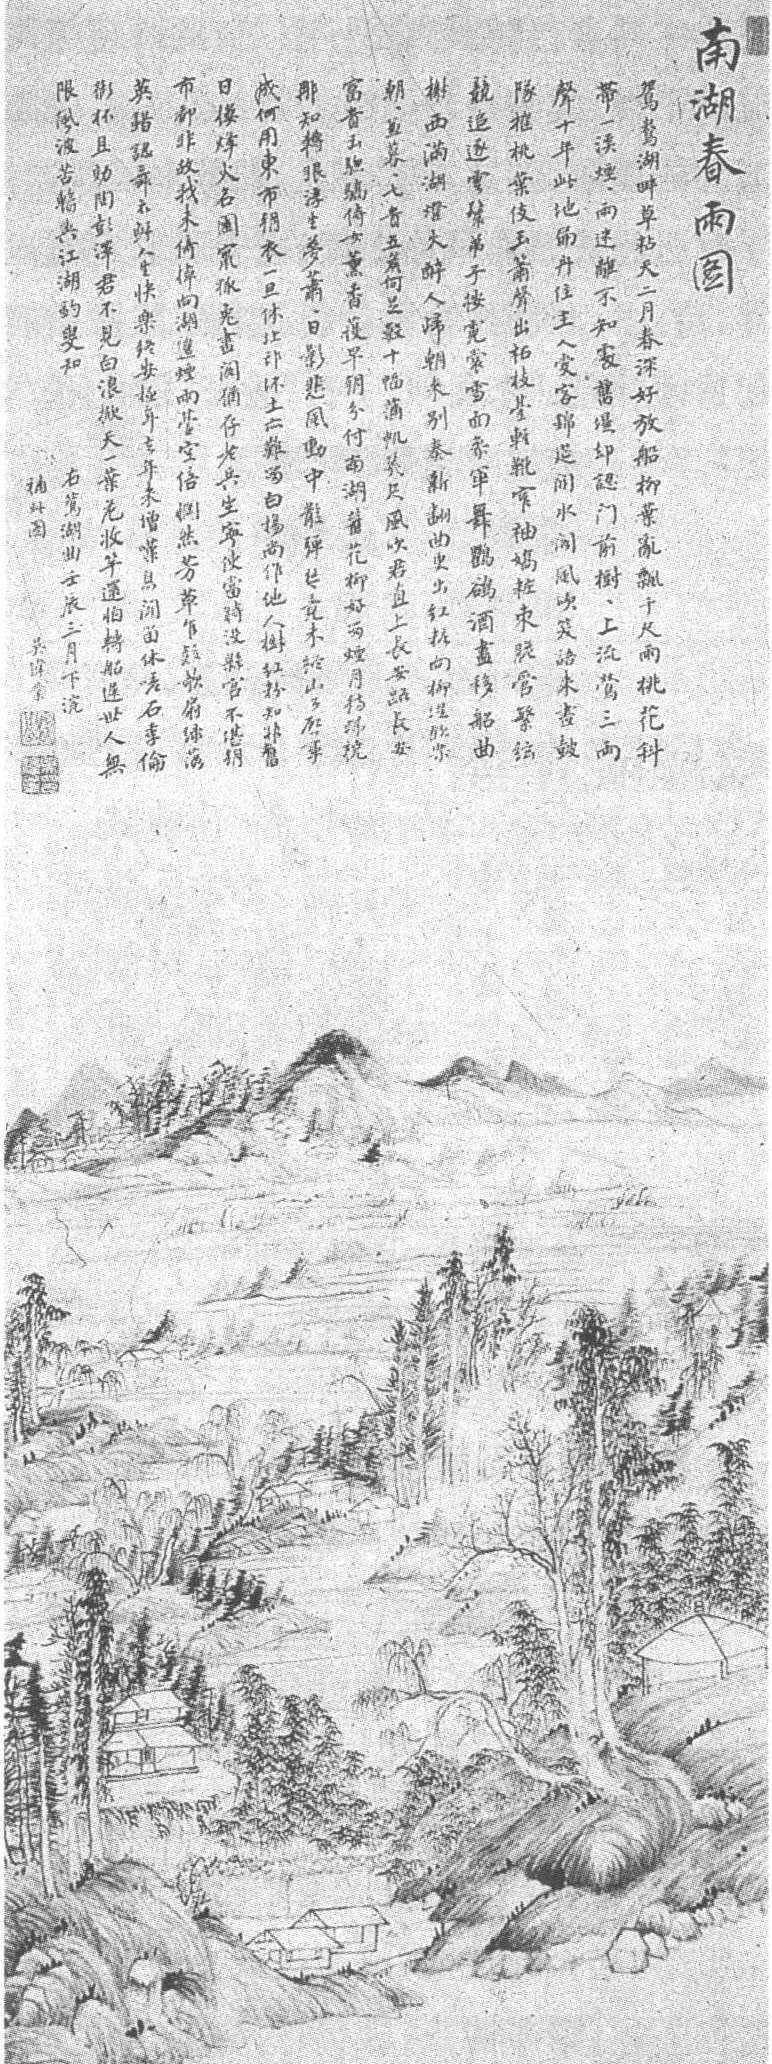 南湖春雨图
鴛鴦湖畔草粘天二月春深好放船柳葉亂飄千尺雨桃花斜
帶一溪煙、雨迷離不知處舊堤却認門前樹、上流鶯三兩
聲十年此地扁舟住主人愛客錦筵開水閣風吹笑語來畫鼓
隊催桃葉伎玉簫聲出柘枝臺輕靴窄袖嬌粧束脆管繁絃
競追逐雲鬟弟子按霓裳雪面參軍舞鸜鵒酒盡移船曲
榭西滿湖燈火醉人歸朝來別奏新翻曲更出紅粧向柳堤歡樂
朝、並暮、七貴五侯何足數十幅蒲帆幾尺風吹君直上長安路長安
富貴玉驄驕侍女薰香護早朝分付南湖舊花柳好留煙月待歸橈
那知轉眼浮生夢蕭、日影悲風動中散彈琴竟未終山公啟事
成何用東市朝衣一旦休北邙抔土亦難留白楊尚作他人樹紅粉知非舊
日樓烽火名園竄狐兔畫閣猶存老兵寧使當時沒縣官不堪朝
市都非故我来倚棹向湖邊煙雨臺空倍惘然芳草乍疑歌扇綠落
英錯認舞衣鮮人生快樂終安極年去年來增嘆息聞笛休嗟石季倫
銜杯且効陶彭澤君不見白浪掀天一葉危收竿還怕轉船遲世人無
限風波苦輸與江湖釣叟知
右鴛湖曲壬辰三月下浣
補此圖
吳偉業